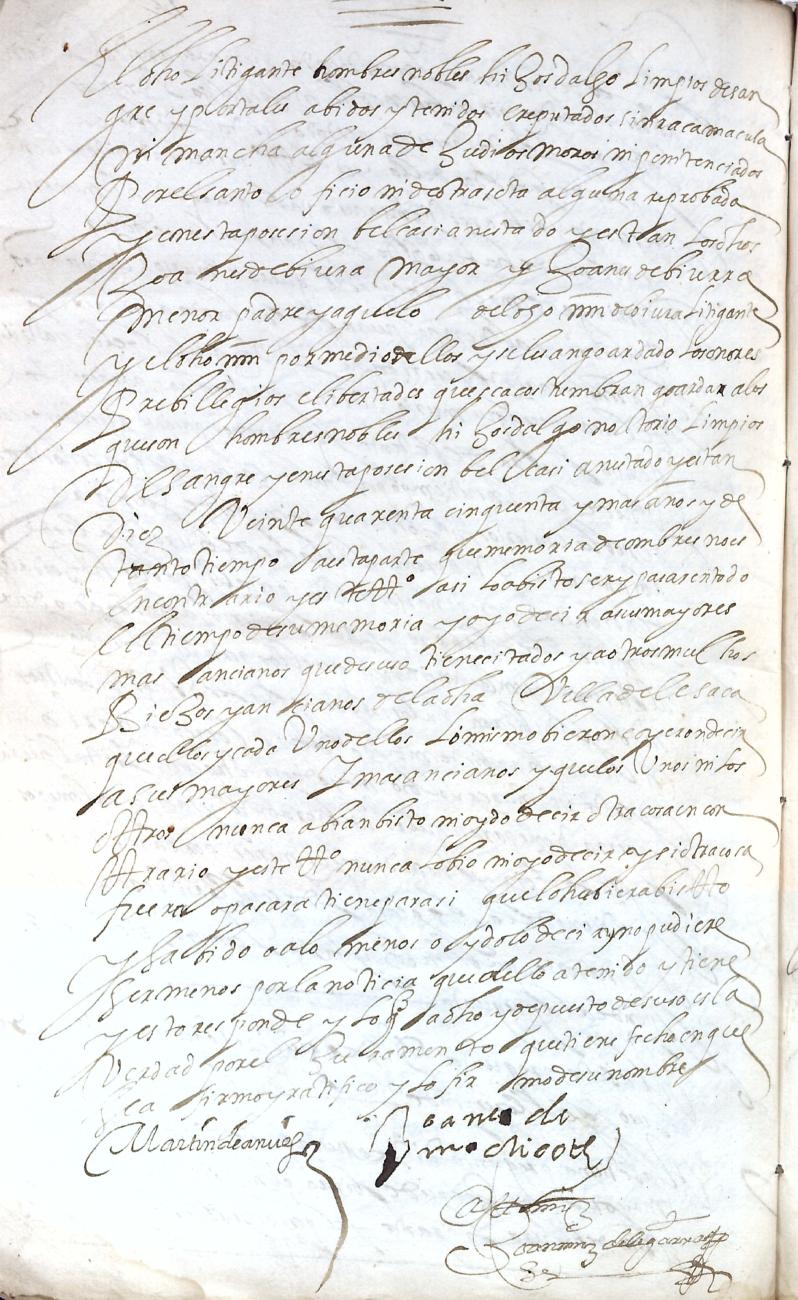 El dho Litigante hombres nobles hijosdalgo Limpios desan
gre y por tales abidos ytenidos ereputados sinraca macula
ni mancha alguna de Judios moros ni penitenciados
Porelsanto oficio nideotraseta alguna reprobada
yenestaposesion belcasi anestado yestan Losdhos
Joanes debiura mayor y Joanes debiurra
menor padre yaguelo deldho mm debiura Litigante
y eldho mm pormediodellos yseles an goardado Losonores
Prebillegios elibertades quese acostumbran goardar alos
queson hombresnobles hijosdalgo notorio Limpios
de sangre yenestaposesion belcasi anestado yestan
Diez Veinte quarenta cinquenta ymas años yde
tanto tiempo aestaparte quememoria deombres noes
encontrario yeste tto asi loabisto ser ypasar entodo
el tiempo desumemoria yoydo decir asusmayores
mas ancianos quedesuso tienecitados yaotros muchos
Biejos yancianos deladha Villa de lesaca
quellos ycada Unodellos Lomismobieron eoyerondecir
asus mayores Imasancianos yquelos Unos nilos
ottros nunca abianbisto nioydo decir otracosa en con
ttrario yeste tto nunca lobio nioyo decir eysiotracosa
fuera opasara tieneparasi quelohubierabistto
y sabido oalo menos oydolo decir ynopudiere
sermenos porlanoticia quedello atenido ytiene
yesto responde y lo q adho ydepuesto desuso esla
Verdad porel Juramento quetiene fecho enque
sea firmo yratifico y lo firmo desunombre
Martin deanues
Joanes de
Antemi